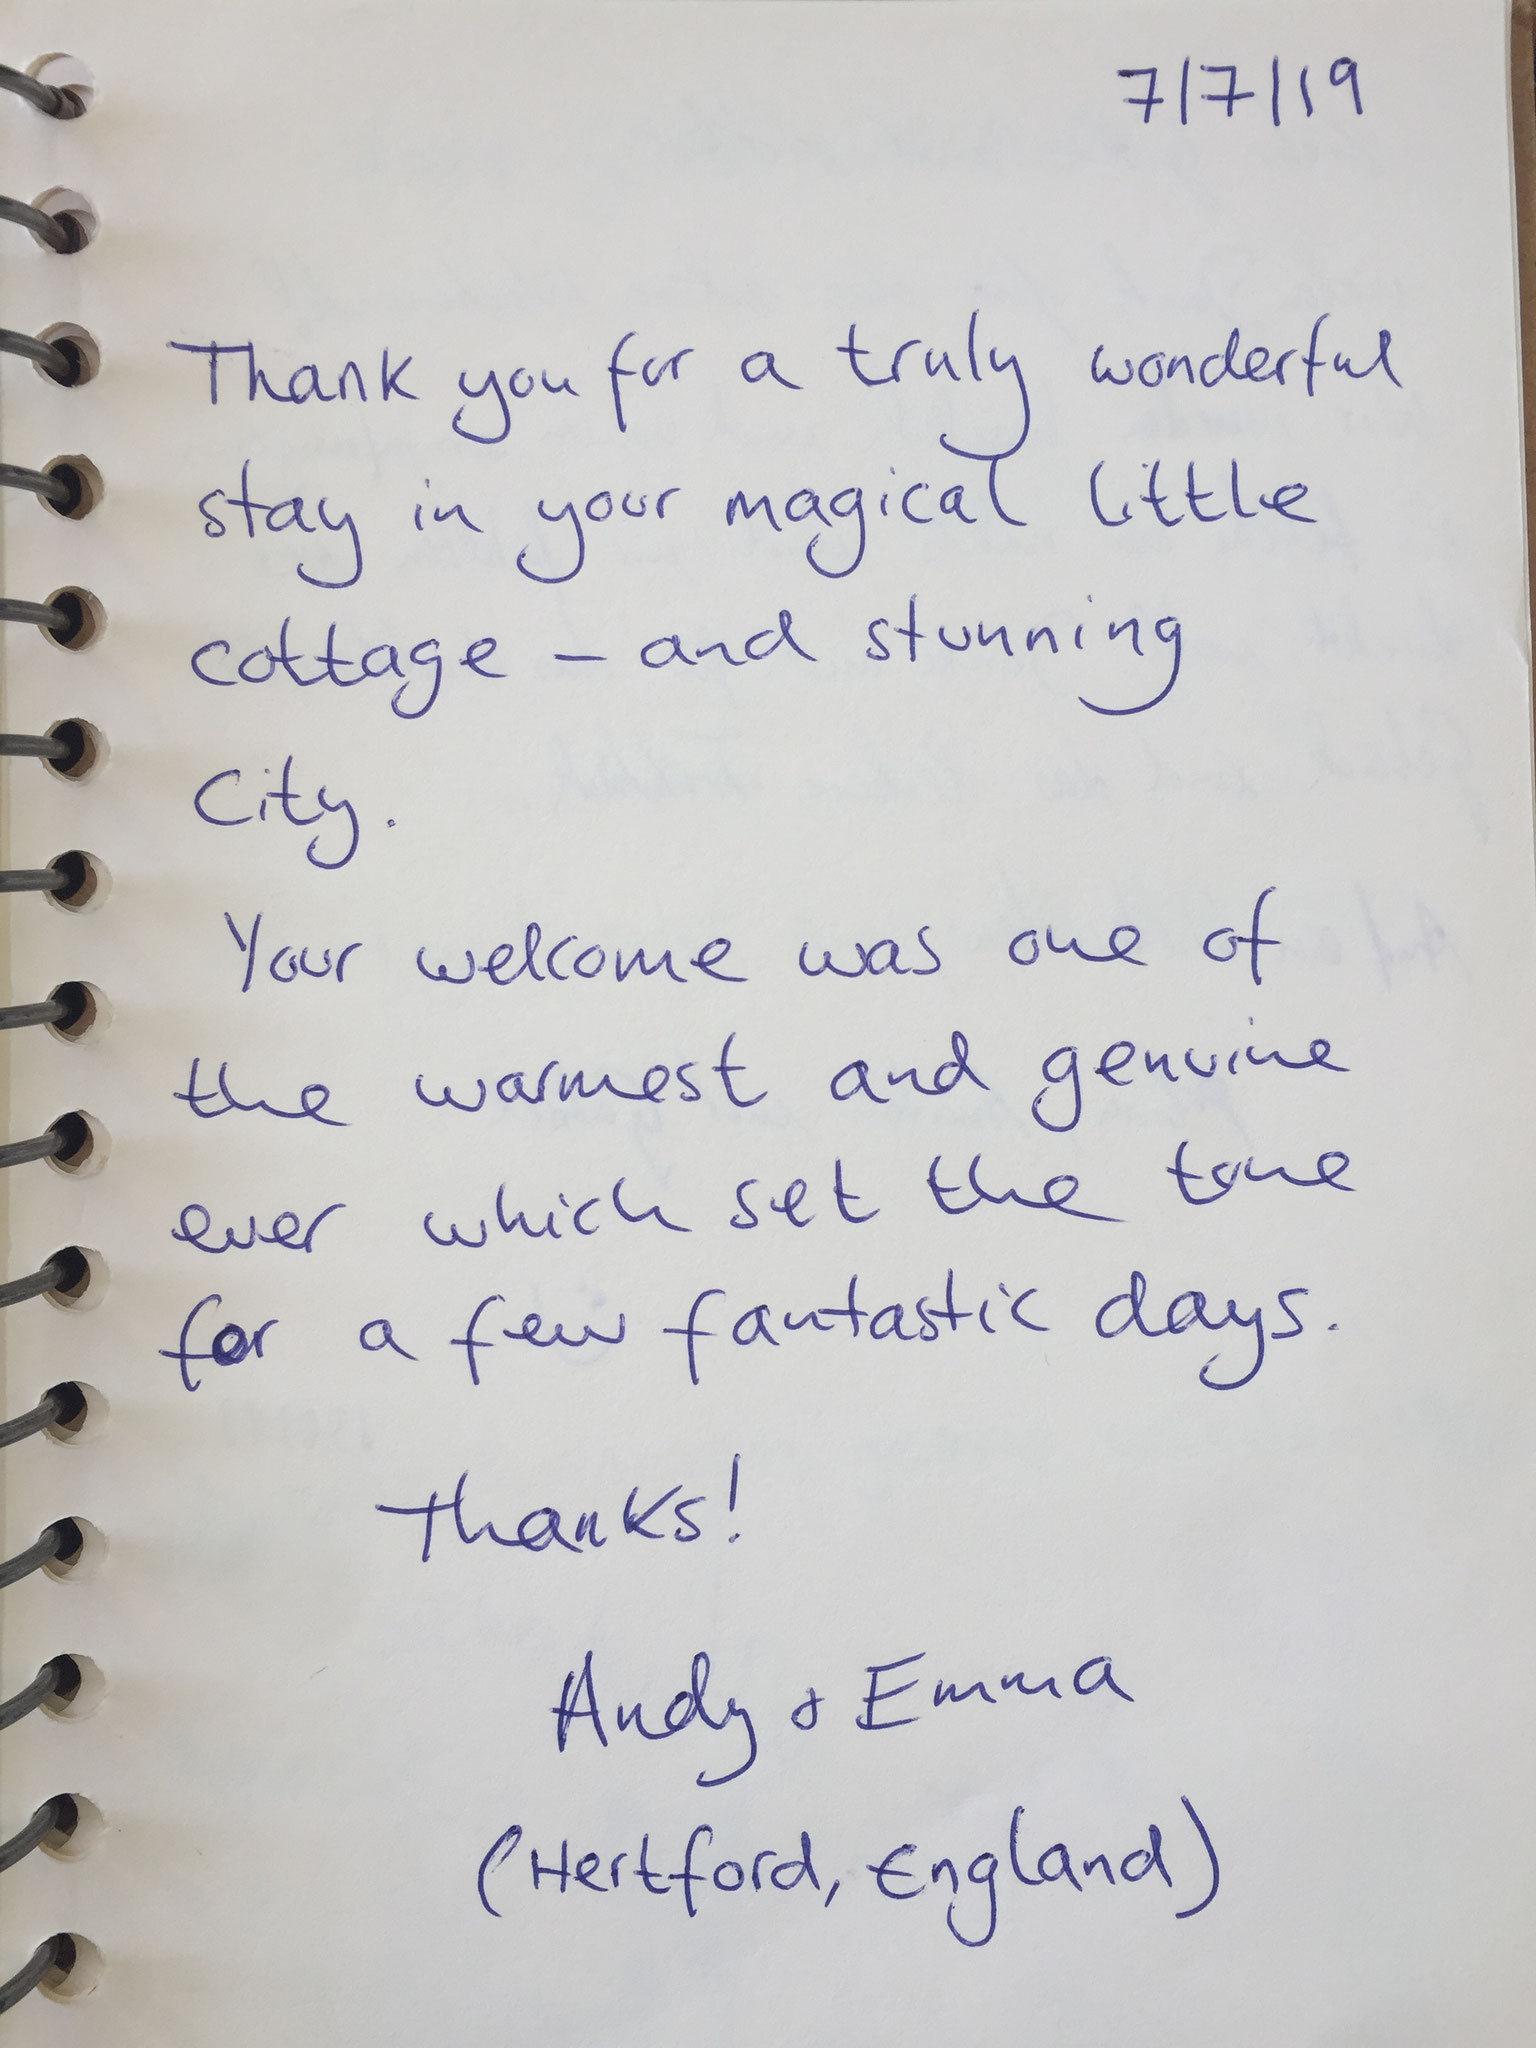 7/7/19
Thank you for a truly wonderful
stay in your magical little
cottage – and stunning
City.
Your welcome was one of
the warmest and genuine
ever which set the tone
for a few fantastic days.
Thanks!
Andy & Emma
(Hertford, England)